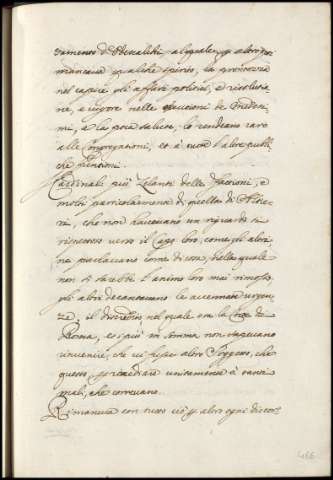 samento d'Odescalchi, al quale p altro non
mancaua ne altro spirito, la prontezza
nel capire gli affari politici, e risolutio
ne, e uigore nelle
mi, e la poca salute, lo rendeano raro
alle Congregationi, et à tutte l'altre publi
che funtioni.
Cardinali più Zelanti delle fattioni, e
molti particolarmente di quella di Altie
ri, che non haueuano un riguardo si
rispettoso uerso il Capo loro, come gli altri,
ne parlauano come di cosa, dalla quale
non si sarebbe l'animo loro mai rimosso,
gli altri decantauano le accennate urgen
ze, il disordine nel quale era la Corte di
Roma, et più in somma non sapeuano
inuenire, che ui fosse altro Soggetto, che
questo, p rimediare unitamente à tanti
mali, che correuano.
Rimaneua con tutto ciò p altro ogni discor
466